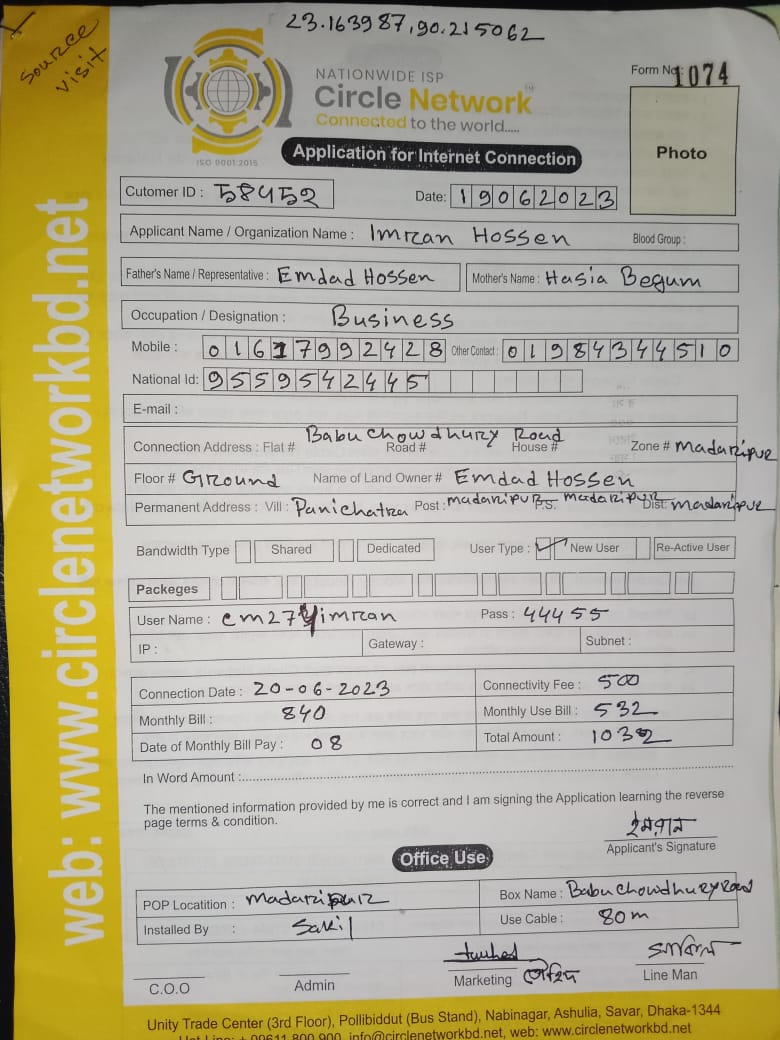 23.163987,90.215062
Source
visit
NATIONWIDE ISP
Circle Network
Connected to the world.....
ISO 9001:2015
Form No: 1074
Photo
Application for Internet Connection
Cutomer ID : 58452
Date: 19062023
Applicant Name / Organization Name : Imran Hossen Blood Group :
Father's Name / Representative : Emdad Hossen Mother's Name : Hasia Begum
Occupation / Designation : Business
Mobile : 01617992428 Other Contact : 01984344510
National Id: 9559542445
E-mail :
Connection Address : Flat # Babu Chowdhury Road Road # House # Zone # Madaripur
Floor # Ground Name of Land Owner # Emdad Hossen
Permanent Address : Vill : Panichatra Post : madaripur P.S. madaripur Dist: madaripur
Bandwidth Type Shared Dedicated User Type : New User Re-Active User
Packeges
User Name : cm27 imran Pass : 44455
IP : Gateway : Subnet :
Connection Date : 20-06-2023 Connectivity Fee : 500
Monthly Bill : 840 Monthly Use Bill : 532
Date of Monthly Bill Pay : 08 Total Amount : 1032
In Word Amount :
The mentioned information provided by me is correct and I am signing the Application learning the reverse
page terms & condition.
ইমরান
Applicant's Signature
Office Use
POP Locatition : Madaripur Box Name : Babu Chowdhury Road
Installed By : Sakil Use Cable : 80m
C.O.O Admin Marketing তৌহিদ Line Man
Unity Trade Center (3rd Floor), Pollibiddut (Bus Stand), Nabinagar, Ashulia, Savar, Dhaka-1344
Hot Line: + 09611 800 900, info@circlenetworkbd.net, web: www.circlenetworkbd.net
web: www.circlenetworkbd.net